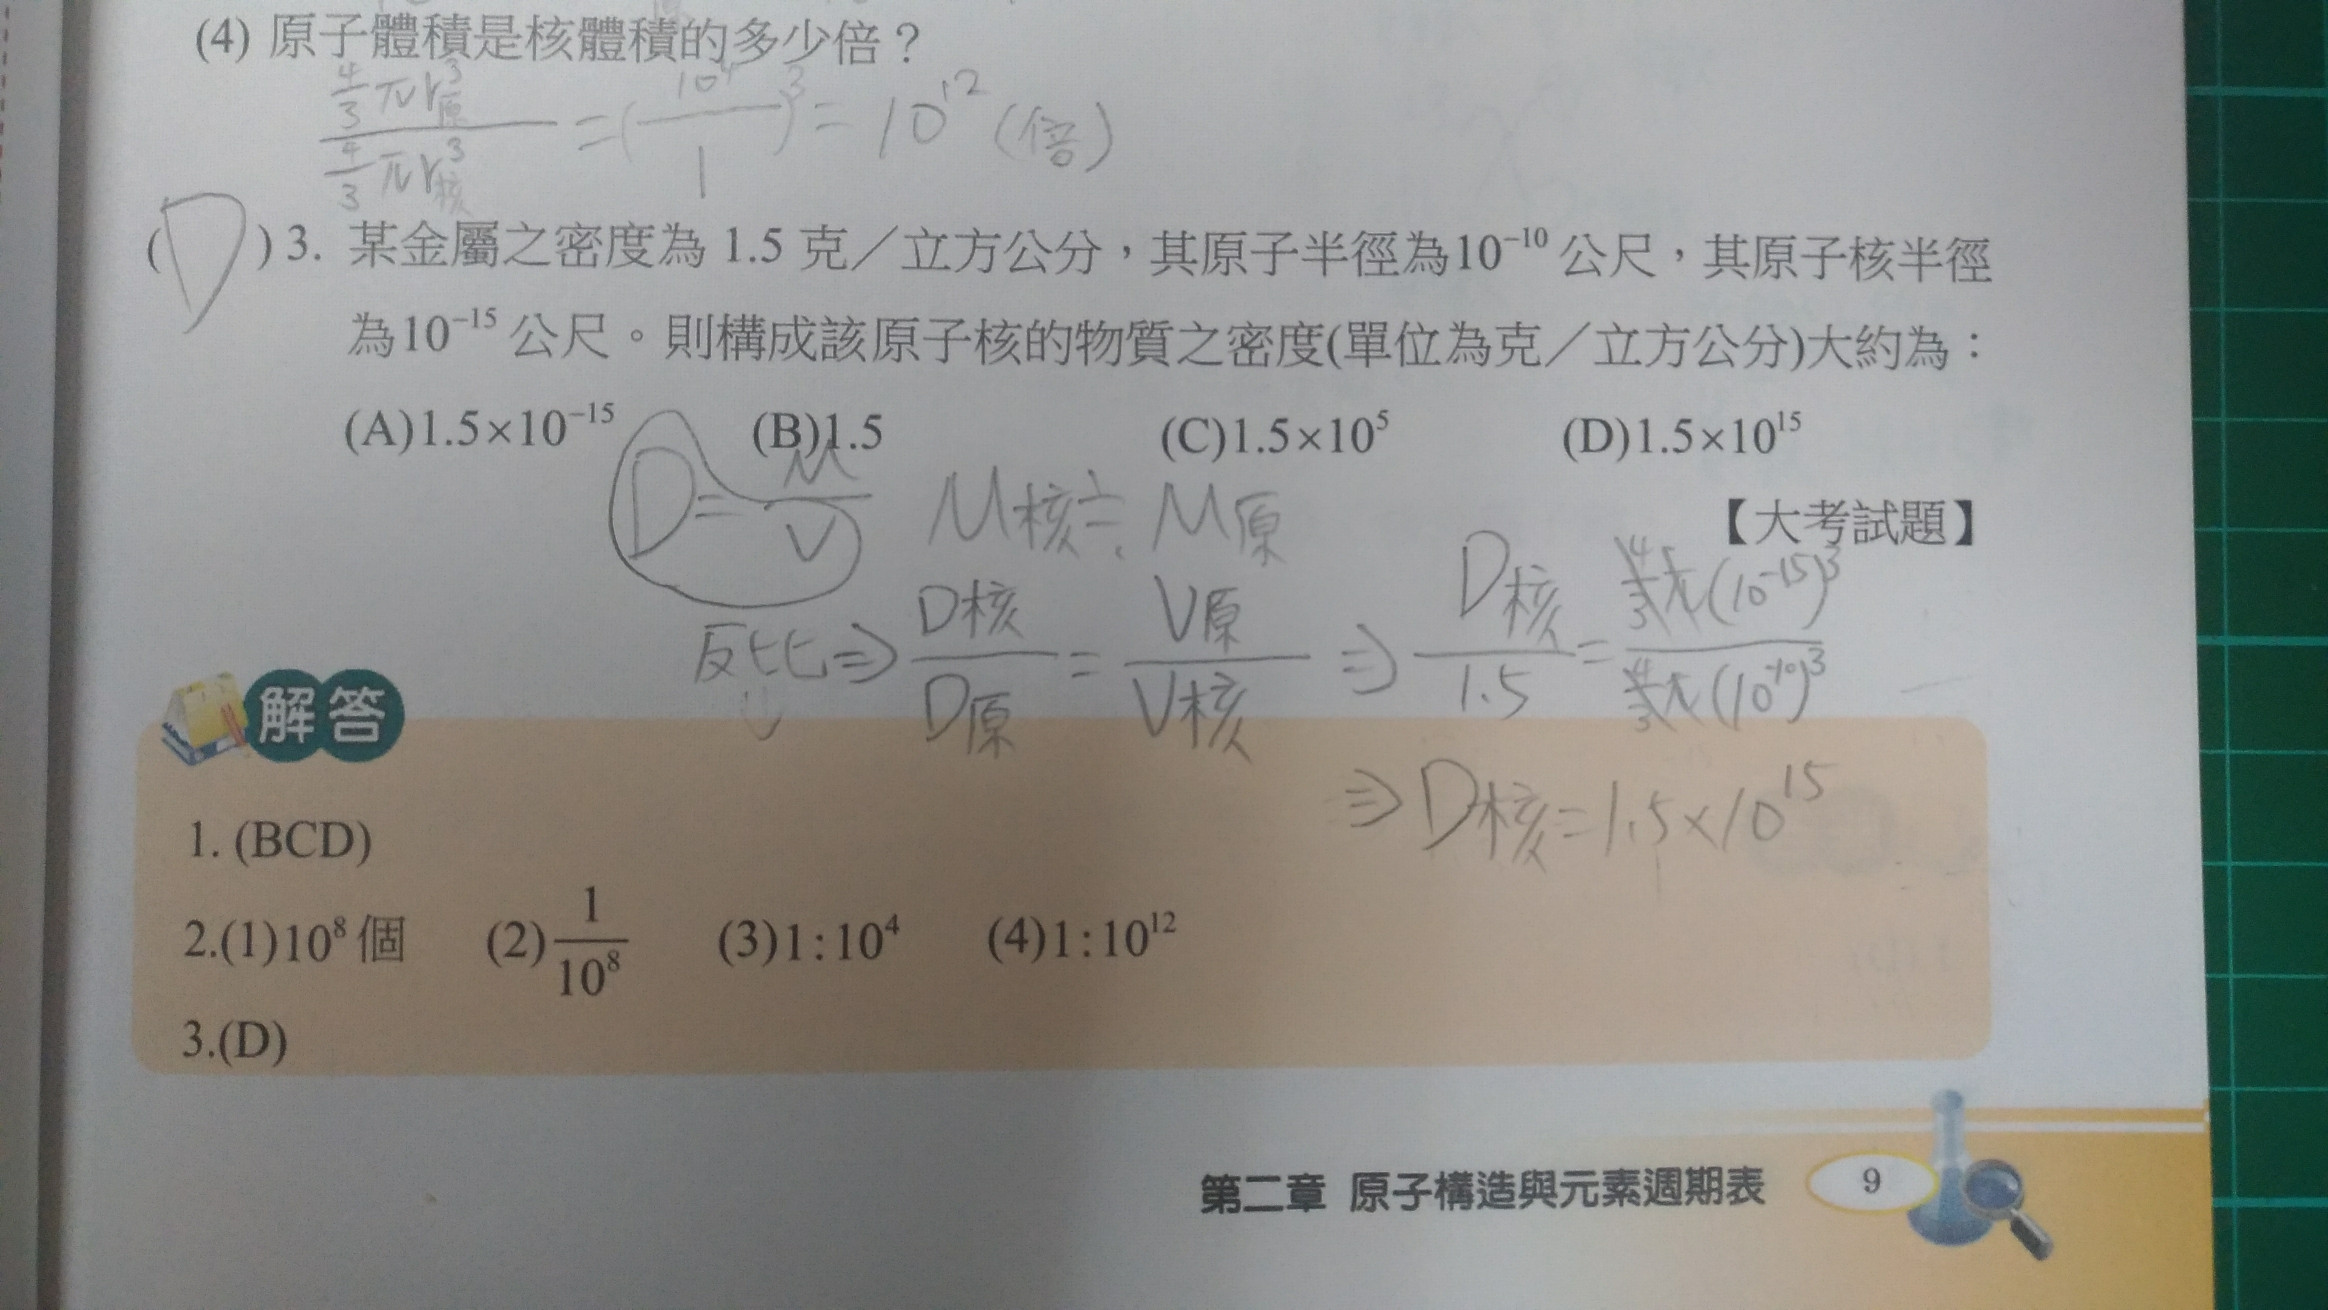 (4) 原子體積是核體積的多少倍？
\frac{\frac{4}{3}πr原^3}{\frac{4}{3}πr核^3} = (\frac{10^4}{1})^3 = 10^{12} (倍)
( D ) 3. 某金屬之密度為 1.5 克／立方公分，其原子半徑為10^{-10} 公尺，其原子核半徑
為10^{-15} 公尺。則構成該原子核的物質之密度(單位為克／立方公分)大約為：
(A)1.5×10^{-15} (B)1.5 (C)1.5×10^5 (D)1.5×10^{15}
【大考試題】
D = \frac{M}{V} M核≒M原
反比⇒ \frac{D核}{D原} = \frac{V原}{V核} ⇒ \frac{D核}{1.5} = \frac{\frac{4}{3}π(10^{-15})^3}{\frac{4}{3}π(10^{-10})^3}
⇒ D核=1.5×10^{15}
解答
1. (BCD)
2.(1)10^8 個 (2)\frac{1}{10^8} (3)1:10^4 (4)1:10^{12}
3.(D)
第二章 原子構造與元素週期表 9